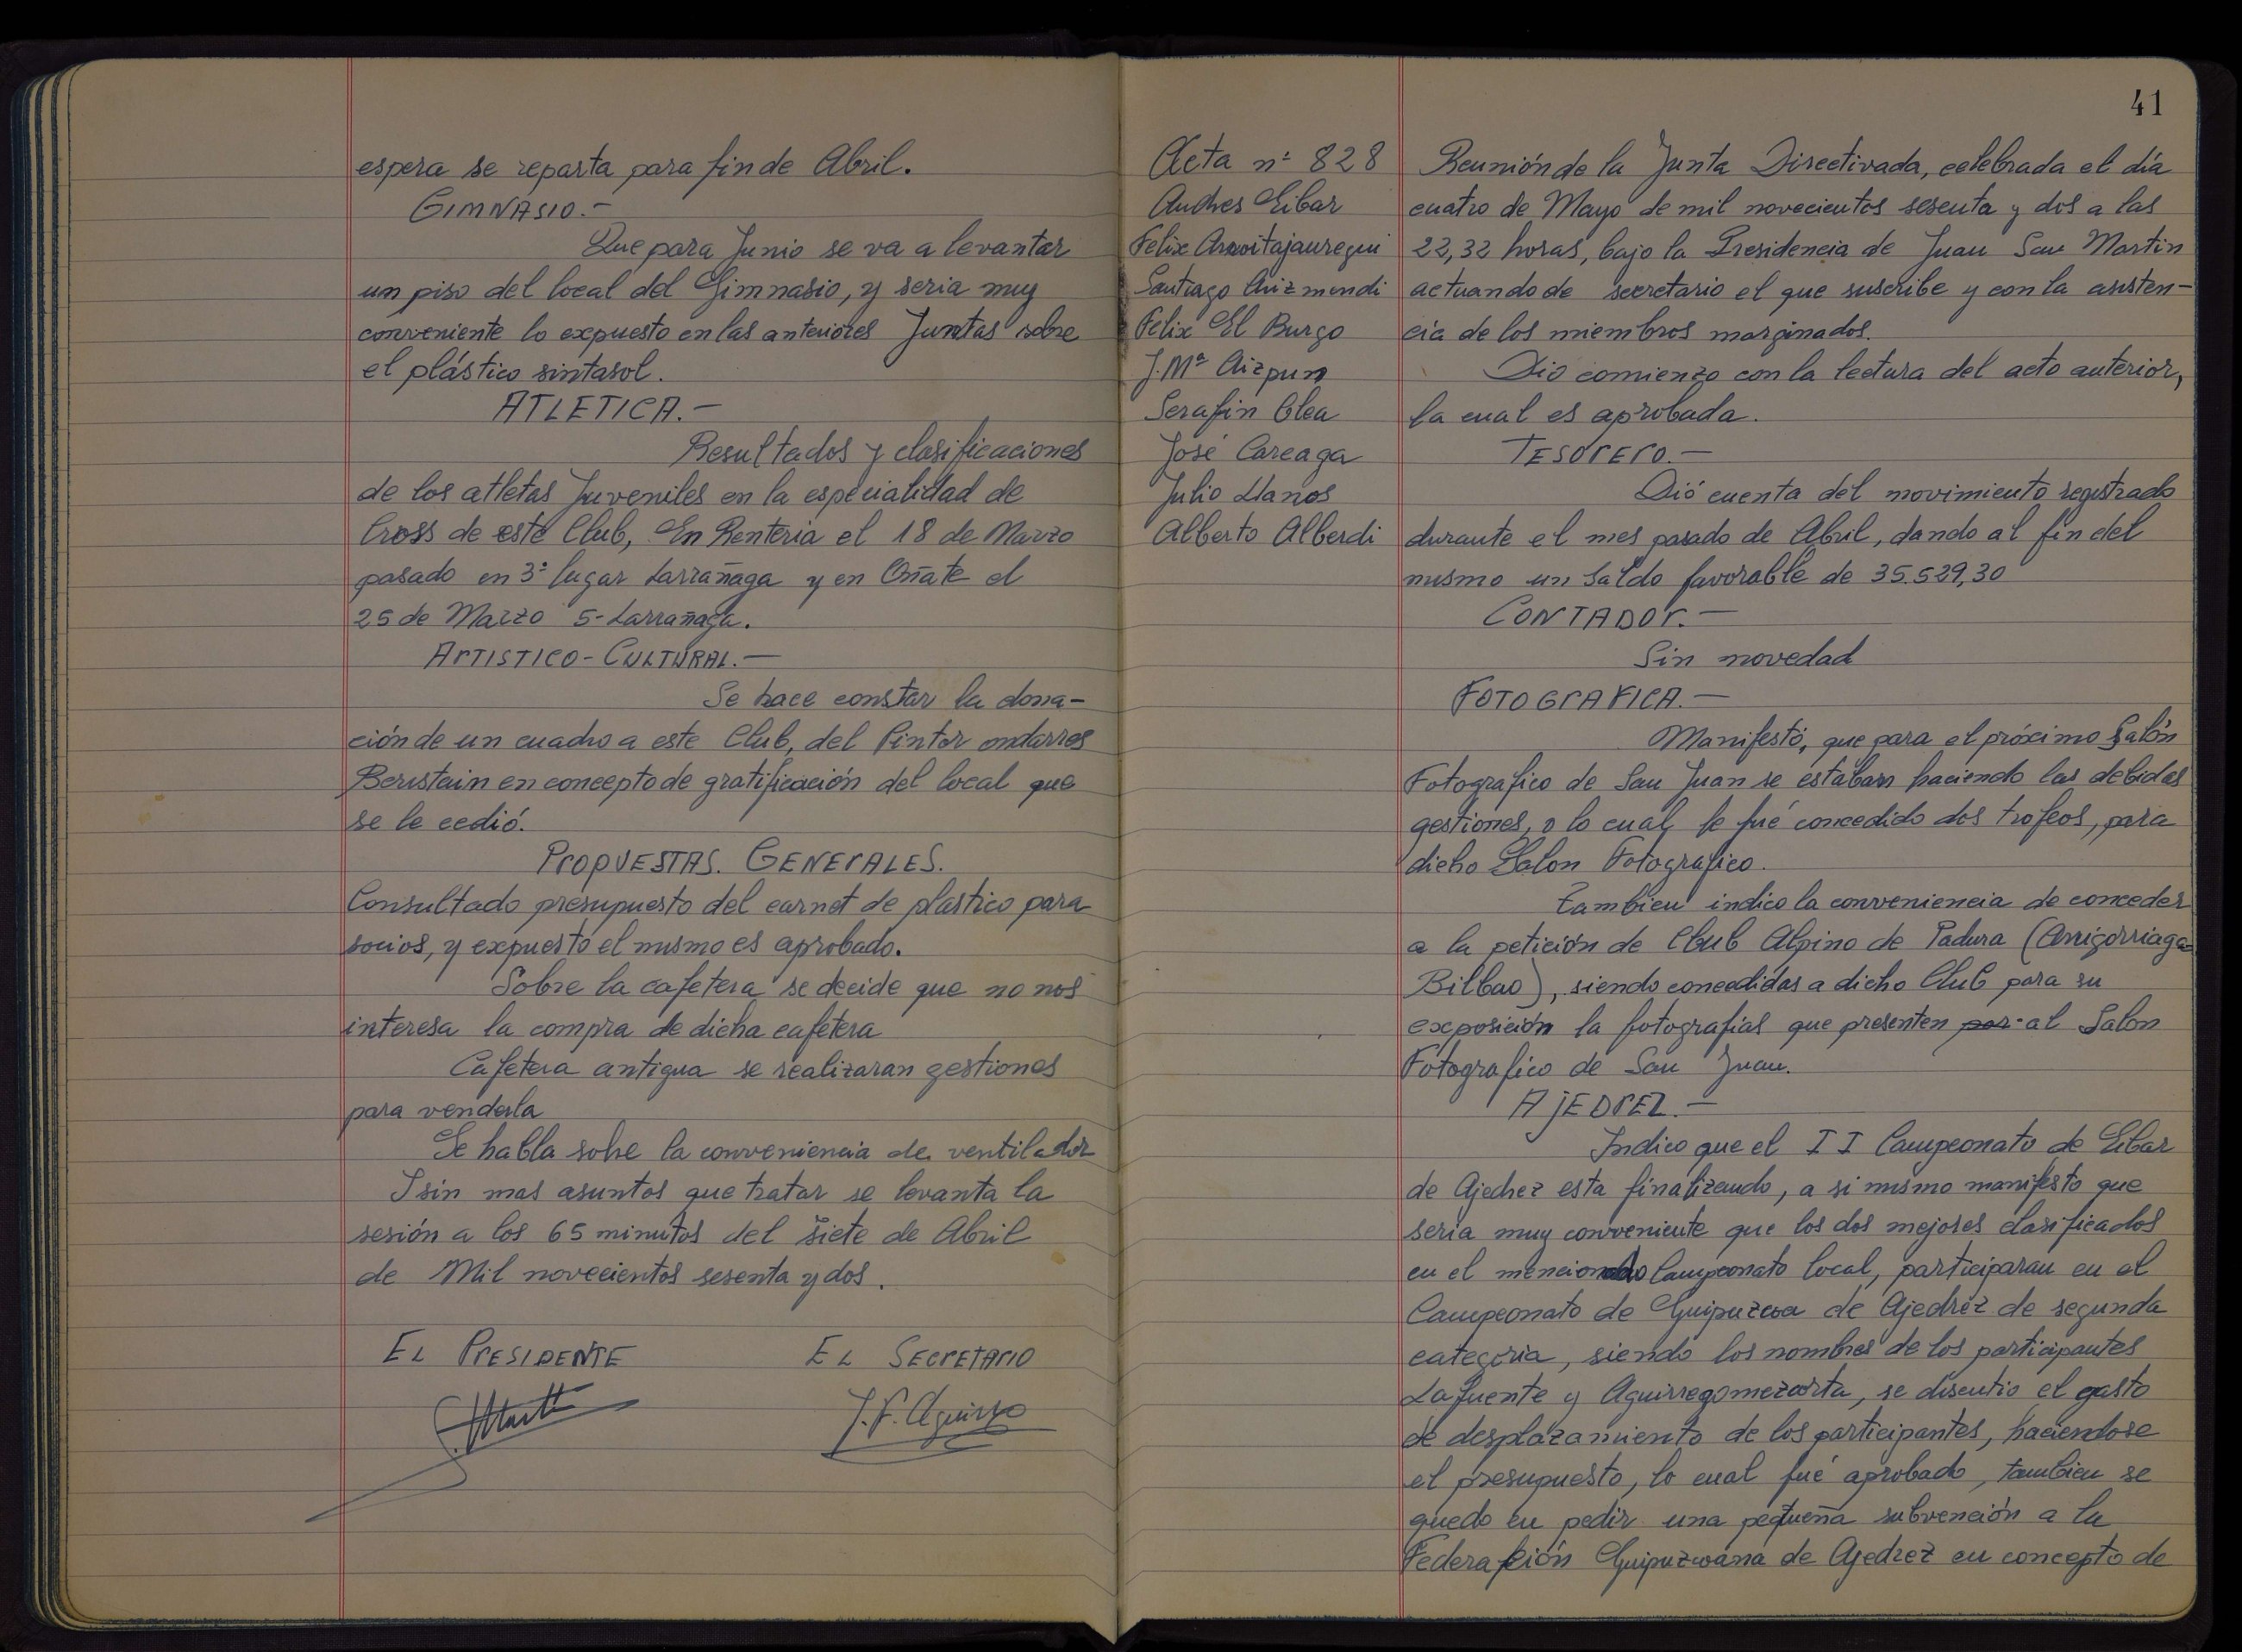 espera se reparta para fin de Abril.
GIMNASIO.-
Que para Junio se va a levantar
un piso del local del Gimnasio, y seria muy
conveniente lo expuesto en las anteriores Juntas sobre
el plástico sintasol.
ATLETICA.-
Resultados y clasificaciones
de los atletas Juveniles en la especialidad de
Cross de este Club, En Renteria el 18 de Marzo
pasado en 3º lugar Larrañaga y en Oñate el
25 de Marzo 5- Larrañaga.
ARTISTICO-CULTURAL.-
Se hace constar la dona-
ción de un cuadro a este Club, del Pintor ondarres
Beristain en concepto de gratificación del local que
se le cedió.
PROPUESTAS. GENERALES.
Consultado presupuesto del carnet de plastico para
socios, y expuesto el mismo es aprobado.
Sobre la cafetera se decide que no nos
interesa la compra de dicha cafetera
Cafetera antigua se realizaran gestiones
para venderla
Se habla sobre la conveniencia de ventilador
I sin mas asuntos que tratar se levanta la
sesión a los 65 minutos del siete de Abril
de Mil novecientos sesenta y dos.
EL PRESIDENTE EL SECRETARIO
J.F. Aguirre
41
Acta nº 828
Andres Eibar
Felix Arnoitajauregui
Santiago Arizmendi
Felix El Burgo
J.Mª Aizpun
Serafin Olea
José Careaga
Julio Llanos
Alberto Alberdi
Reunión de la Junta Directivada, celebrada el día
cuatro de Mayo de mil novecientos sesenta y dos a las
22,32 horas, bajo la Presidencia de Juan San Martin
actuando de secretario el que suscribe y con la asisten-
cia de los miembros marginados.
Dio comienzo con la lectura del acto anterior,
la cual es aprobada.
TESORERO.-
Dió cuenta del movimiento registrado
durante el mes pasado de Abril, dando al fin del
mismo un saldo favorable de 35.529,30
CONTADOR.-
Sin novedad
FOTOGRAFICA.-
Manifestó, que para el próximo Salón
Fotografico de San Juan se estaban haciendo las debidas
gestiones, a lo cual, le fué concedido dos trofeos, para
dicho Salon Fotografico.
Tambien indico la conveniencia de conceder
a la petición de Club Alpino de Padura (Arrigorriaga-
Bilbao), siendo concedidas a dicho Club para su
exposición la fotografias que presenten por al Salon
Fotografico de San Juan.
AJEDREZ.-
Indico que el II Campeonato de Eibar
de Ajedrez esta finalizando, a si mismo manifesto que
seria muy conveniente que los dos mejores clasificados
en el mencionado Campeonato local, participaran en el
Campeonato de Guipuzcoa de Ajedréz de segunda
categoria, siendo los nombres de los participantes
Lafuente y Aguirregomezcorta, se discutio el gasto
de desplazamiento de los participantes, haciendose
el presupuesto, lo cual fué aprobado, tambien se
quedo en pedir una pequeña subvención a la
Federación Guipuzcoana de Ajedrez en concepto de